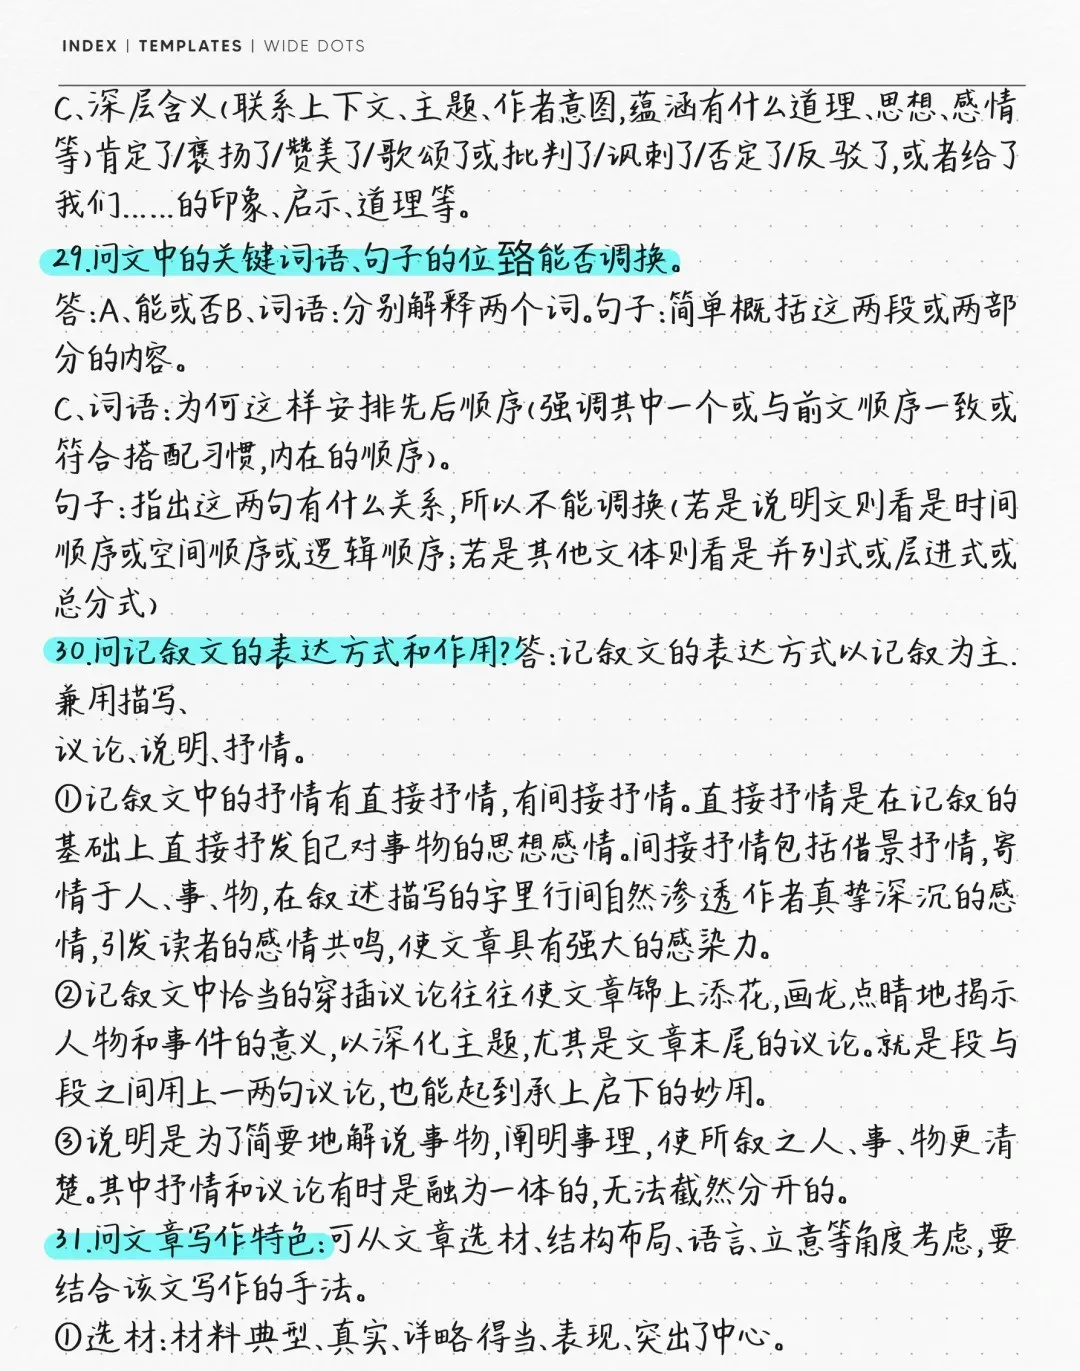 INDEX | TEMPLATES | WIDE DOTS
C、深层含义(联系上下文、主题、作者意图,蕴涵有什么道理、思想、感情
等)肯定了/褒扬了/赞美了/歌颂了或批判了/讽刺了/否定了/反驳了,或者给了
我们……的印象、启示、道理等。
29.问文中的关键词语、句子的位臵能否调换。
答:A、能或否B、词语:分别解释两个词。句子:简单概括这两段或两部
分的内容。
C、词语:为何这样安排先后顺序(强调其中一个或与前文顺序一致或
符合搭配习惯,内在的顺序)。
句子:指出这两句有什么关系,所以不能调换(若是说明文则看是时间
顺序或空间顺序或逻辑顺序;若是其他文体则看是并列式或层进式或
总分式)
30.问记叙文的表达方式和作用?答:记叙文的表达方式以记叙为主.
兼用描写、
议论、说明、抒情。
①记叙文中的抒情有直接抒情,有间接抒情。直接抒情是在记叙的
基础上直接抒发自己对事物的思想感情。间接抒情包括借景抒情,寄
情于人、事、物,在叙述描写的字里行间自然渗透作者真挚深沉的感
情,引发读者的感情共鸣,使文章具有强大的感染力。
②记叙文中恰当的穿插议论往往使文章锦上添花,画龙点睛地揭示
人物和事件的意义,以深化主题,尤其是文章末尾的议论。就是段与
段之间用上一两句议论,也能起到承上启下的妙用。
③说明是为了简要地解说事物,阐明事理,使所叙之人、事、物更清
楚。其中抒情和议论有时是融为一体的,无法截然分开的。
31.问文章写作特色:可从文章选材、结构布局、语言、立意等角度考虑,要
结合该文写作的手法。
①选材:材料典型、真实、详略得当、表现、突出了中心。